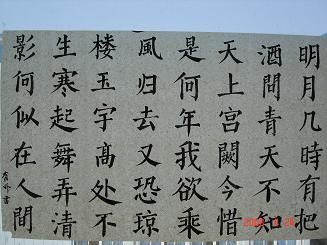 明月几時有把
酒問青天不知
天上宮闕今惜
是何年我欲乘
風归去又恐琼
楼玉宇髙处不
生寒起舞弄清
影何似在人間